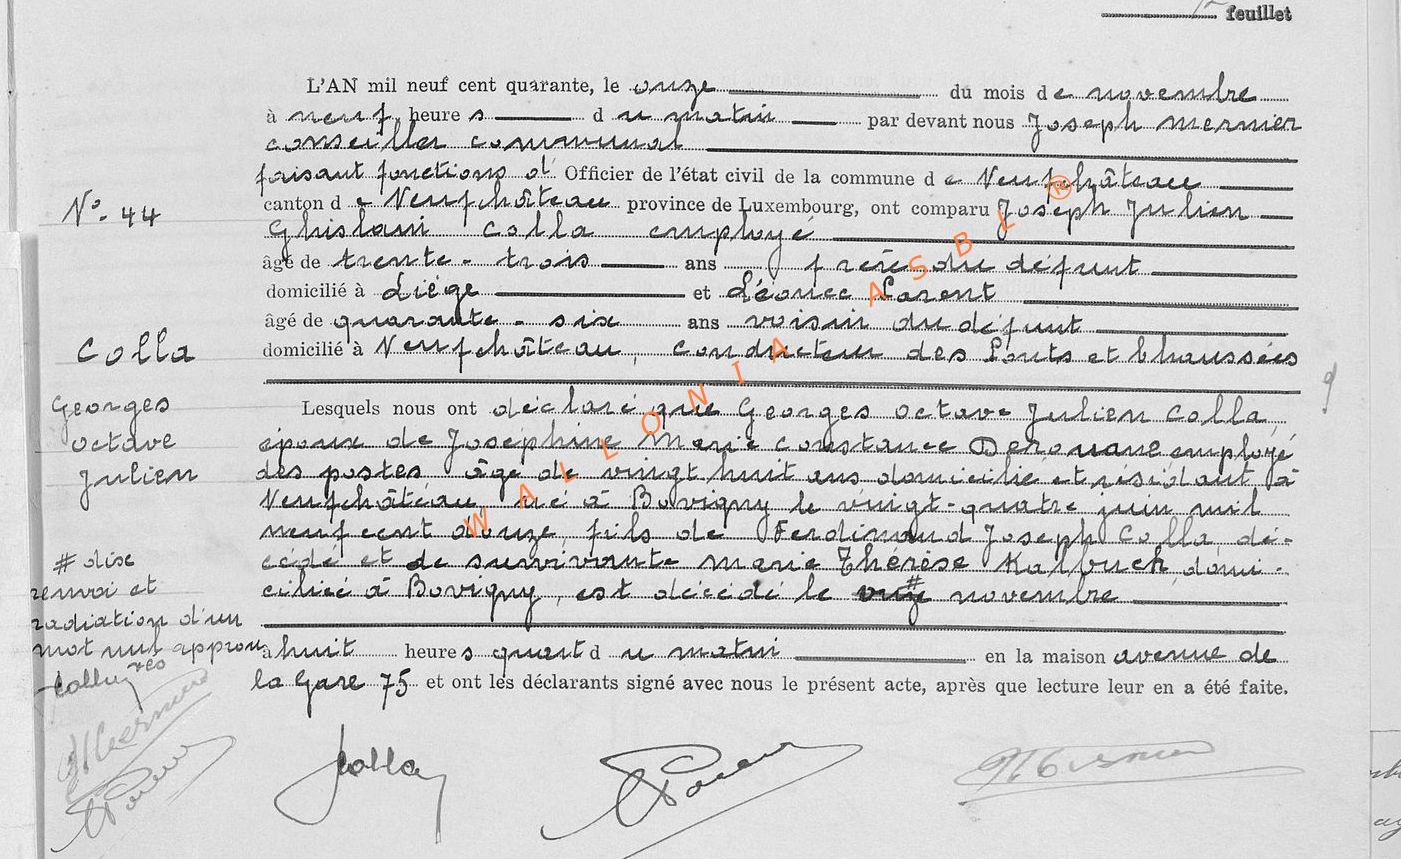 feuillet
L'AN mil neuf cent quarante, le onze du mois de novembre
à neuf heures du matin par devant nous Joseph Mernier
conseiller communal
faisant fonctions d' Officier de l'état civil de la commune de Neufchâteau
canton de Neufchâteau province de Luxembourg, ont comparu Joseph Julien
Ghislain Colla employé
âgé de trente-trois ans frère du défunt
domicilié à Liège et Léonce Parent
âgé de quarante-six ans voisin du défunt
domicilié à Neufchâteau, conducteur des Ponts et Chaussées
Lesquels nous ont déclaré que Georges Octave Julien Colla,
époux de Joséphine Marie Constance Derouane employé
des postes âgé de vingt huit ans domicilié et résidant à
Neufchâteau né à Bovigny le vingt-quatre juin mil
neuf cent douze, fils de Ferdinand Joseph Colla, dé-
cédé et de survivante Marie Thérèse Kalbuch, domi-
ciliée à Bovigny, est décédé le # novembre
à huit heures quart du matin en la maison avenue de
la Gare 75 et ont les déclarants signé avec nous le présent acte, après que lecture leur en a été faite.
N°. 44
Colla
Georges
Octave
Julien
# dix
renvoi et
radiation d'un
mot nul approu
vés
Colla
Mernier
Parent
Colla
Parent
Mernier
WALLONIA ASBL ®